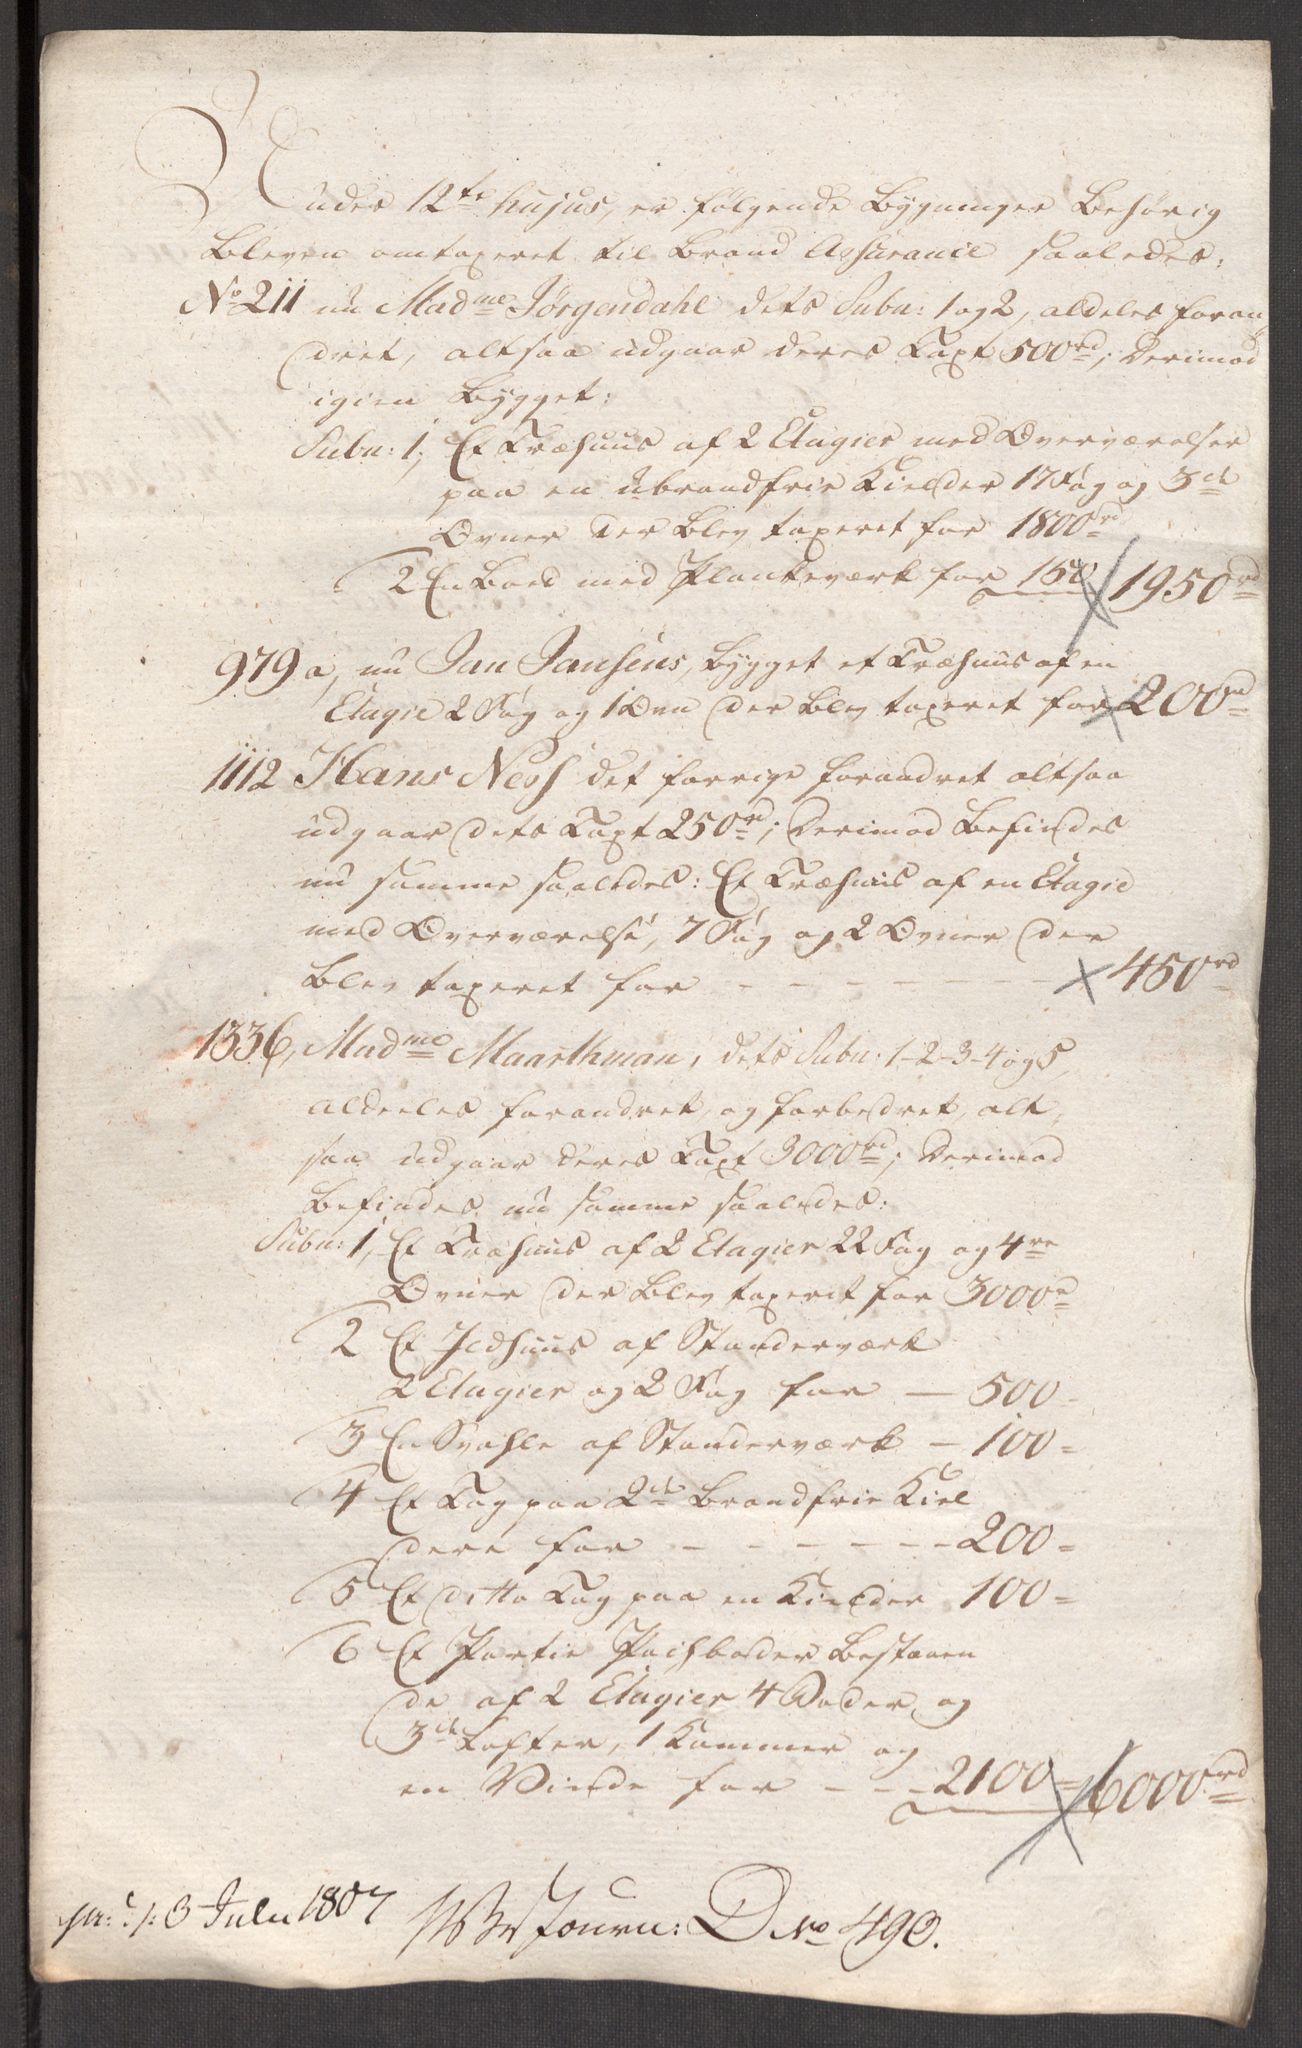 Under 12te hujus, er følgende Bygninger Behørig
Bleven omtaxeret til Brand Assurance saaledes:
No 211 nu Madme Jörgendahl dets Subn: 1 og 2, aldeles foran-
dret, altsaa udgaar deres Taxt 500rd; Derimod
igien Bygget:
Subn: 1, Et Træhuus af 2 Etagier med Overværelser
paa en ubrandfrie Kielder 17 Fag og 3de
Ovner der Blev taxeret for 1800rd
2 En Boed med Plankeværk for 150 1950rd
979a, nu Jan Jansens, bygget et Træhuus af en
Etagie 2 Fag og 1 Ovn der Blev taxeret for 200rd
1112 Hans Ness det forrige forandret altsaa
udgaar dets Taxt 250rd; Derimod Befindes
nu samme saaledes: Et Træhuus af en Etagie
med Overværelse, 7 Fag og 2 Ovner der
Blev taxeret for - - - - - - - 450rd
1336, Madme Maarthman, dets Subn: 1-2-3-4 og 5,
aldeeles forandret, og forbedret, alt,
saa udgaar deres Taxt 3000rd; Derimod
Befindes nu samme saaledes:
Subn: 1, Et Træhuus af 2 Etagier 22 Fag og 4re
Ovner der Blev taxerit for 3000rd
2 Et Ildhuus af Standerværk
2 Etagier og 2 Fag for — 500 -
3 En Svahle af Standerværk — 100 =
4 Et Tag paa 2de Brandfrie Kiel
dere for - - - - - - 200 =
5 Et ditto Tag paa en Kielder 100 =
6 Et Partie Pachboder Bestaaen
de af 2 Etagier 4 Boder og
3de Lofter, 1 Kammer og
en Vinde for - - - 2100 = 6000rd
3 Julii 1807 Journ: D No 490.